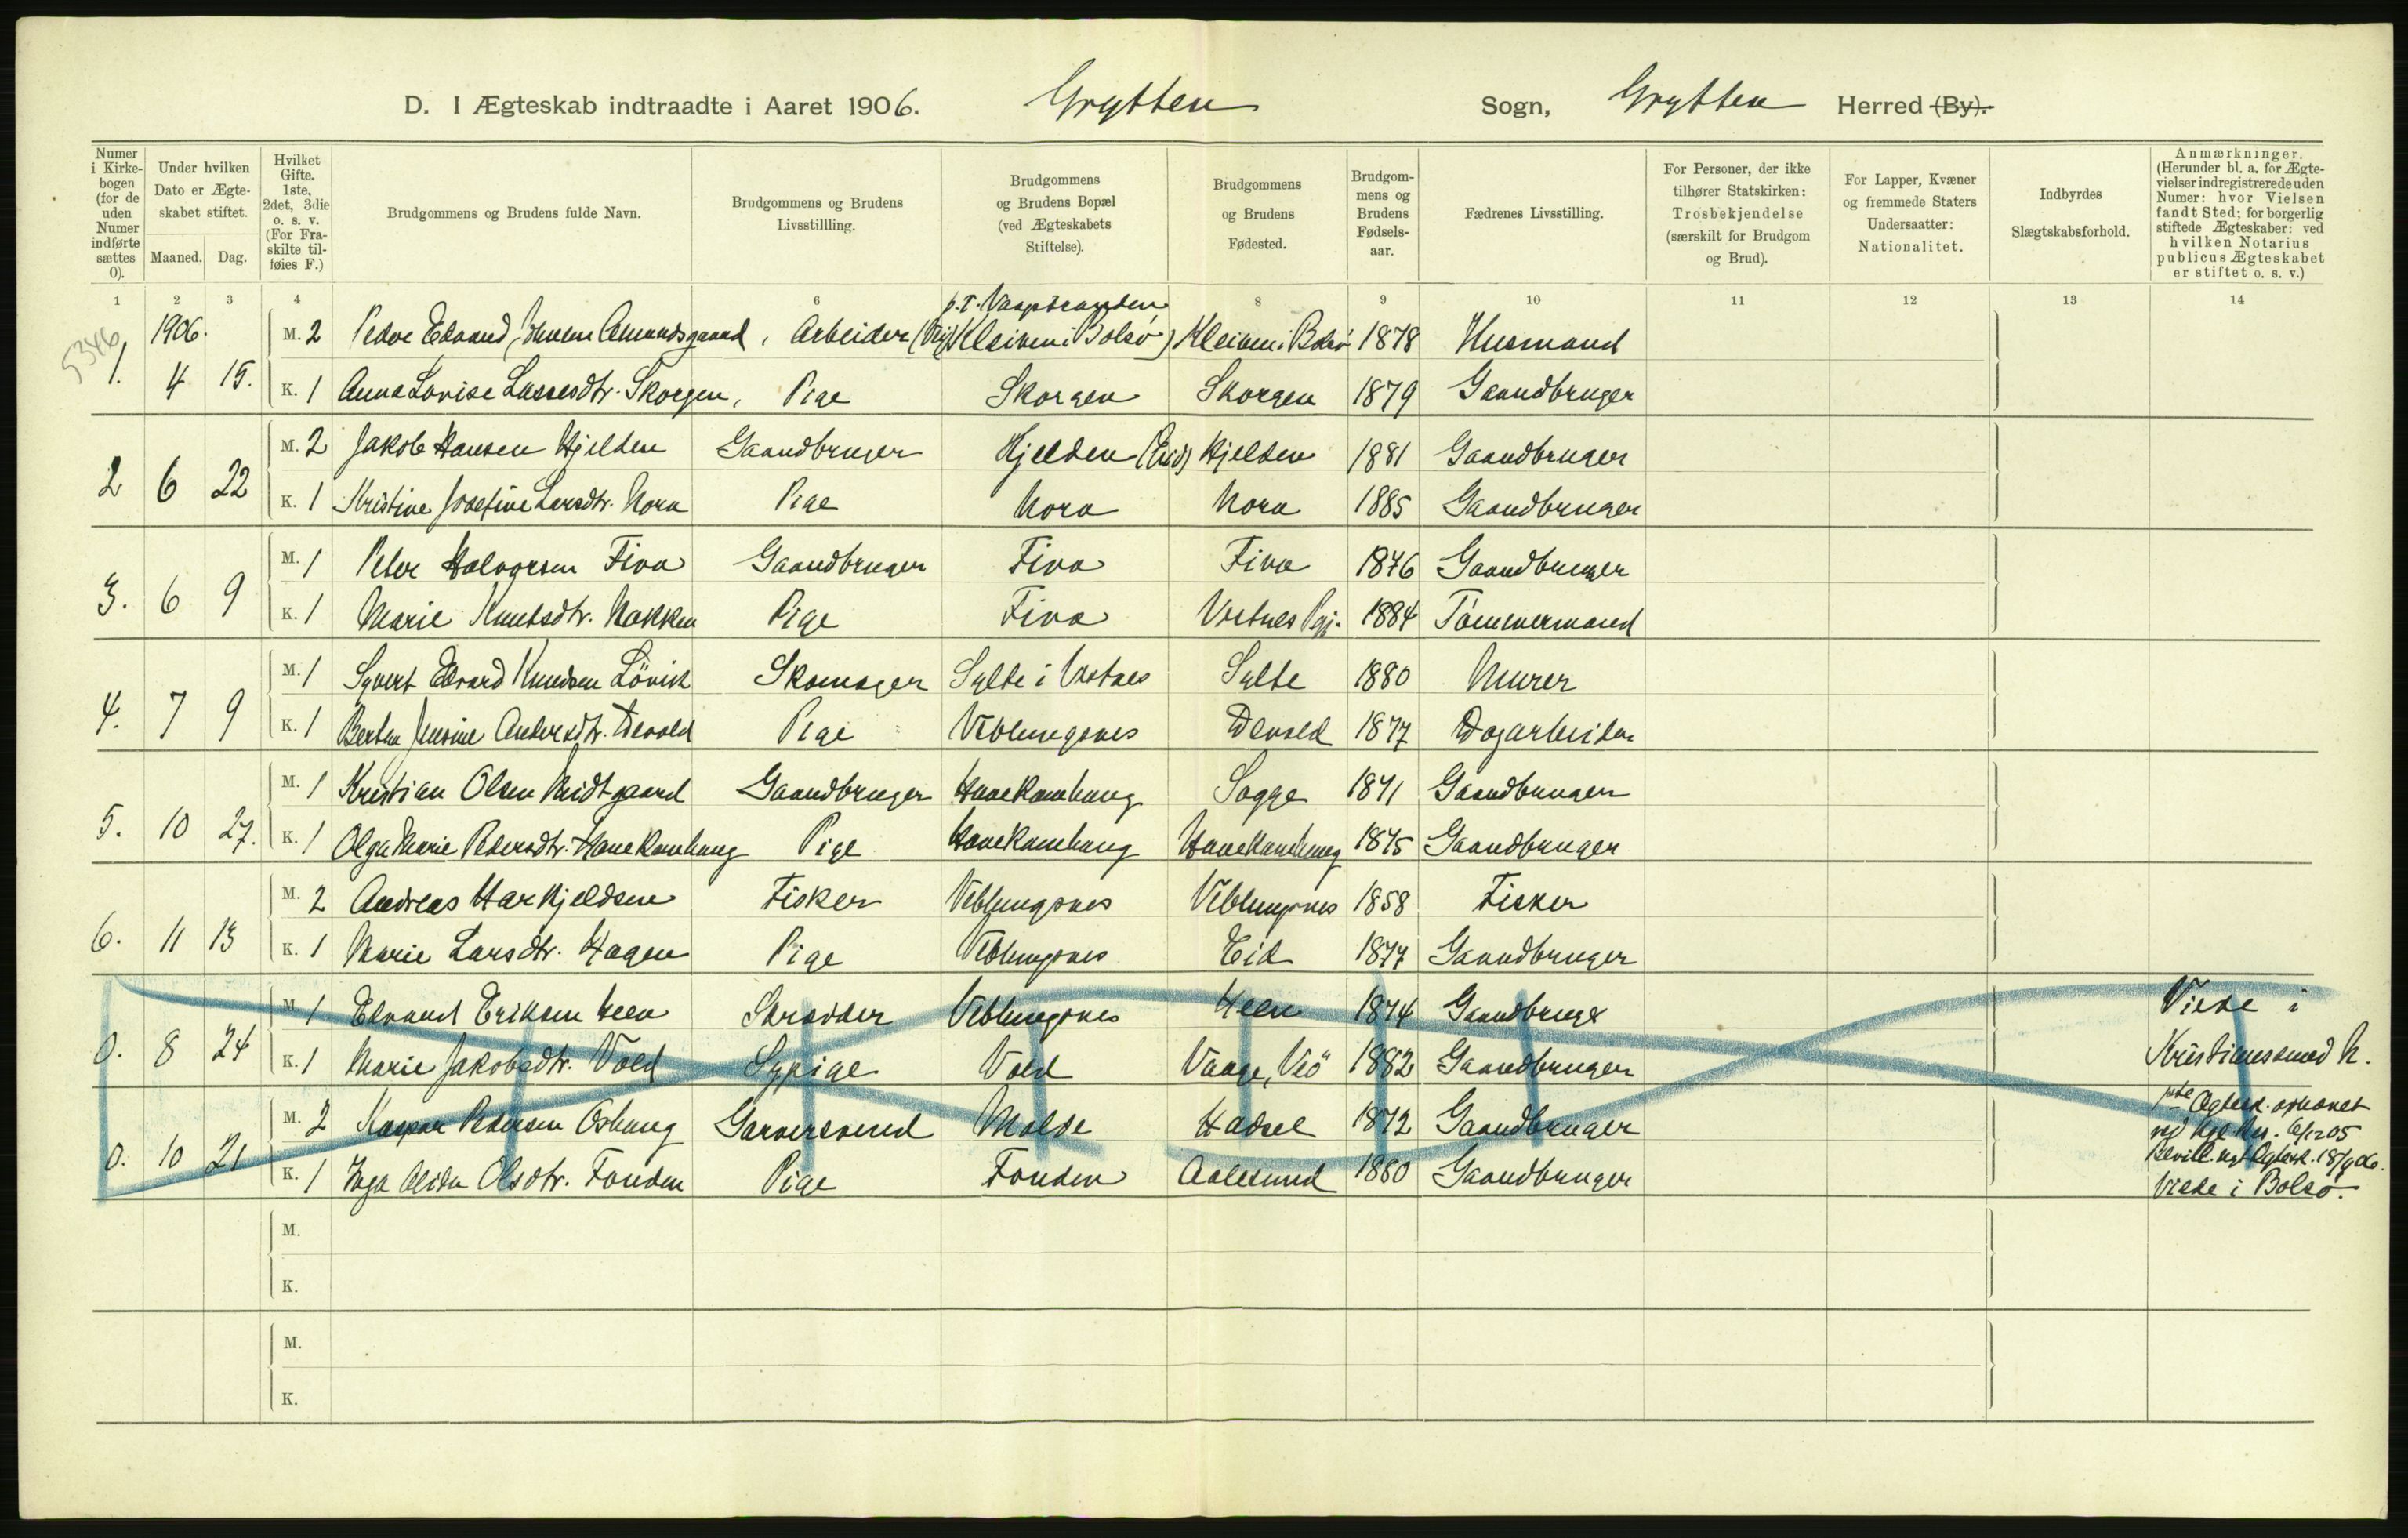 D. I Ægteskab indtraadte i Aaret 1906. Grytten Sogn, Grytten Herred (By).
Numer i Kirkebogen (for de uden Numer indførte sættes 0).
Under hvilken Dato er Ægteskabet stiftet.
Maaned. Dag.
Hvilket Gifte. 1ste, 2det, 3die o. s. v. (For Fraskilte tilføies F.)
Brudgommens og Brudens fulde Navn.
Brudgommens og Brudens Livsstillling.
Brudgommens og Brudens Bopæl (ved Ægteskabets Stiftelse).
Brudgommens og Brudens Fødested.
Brudgommens og Brudens Fødselsaar.
Fædrenes Livsstilling.
For Personer, der ikke tilhører Statskirken: Trosbekjendelse (særskilt for Brudgom og Brud).
For Lapper, Kvæner og fremmede Staters Undersaatter: Nationalitet.
Indbyrdes Slægtskabsforhold.
Anmærkninger. (Herunder bl. a. for Ægtevielser indregistrerede uden Numer: hvor Vielsen fandt Sted; for borgerlig stiftede Ægteskaber: ved hvilken Notarius publicus Ægteskabet er stiftet o. s. v.)
1 2 3 4 6 8 9 10 11 12 13 14
5346
1906.
1. 4 15.
M. 2 Peder Edvard Jensen Amundsgaard, Arbeider p.t. Vaagstranden (Kleiven i Bolsø) Kleiven i Bolsø 1878 Husmand
K. 1 Anna Lovise Lassesdtr. Skorgen, Pige Skorgen Skorgen 1879 Gaardbruger
2 6 22
M. 2 Jakob Hansen Hjelden Gaardbruger Hjelden (Eid) Hjelden 1881 Gaardbruger
K. 1 Kristine Josefine Larsdtr. Nora Pige Nora Nora 1885 Gaardbruger
3. 6 9
M. 1 Peter Halvorsen Fiva Gaardbruger Fiva Fiva 1876 Gaardbruger
K. 1 Marie Knutsdtr. Nakken Pige Fiva Vestnes Pgj. 1884 Tømmermand
4. 7 9
M. 1 Syvert Edvard Knudsen Lövik Skomager Sylte i Vestnes Sylte 1880 Murer
K. 1 Berthe Jensine Andersdtr. Devold Pige Veblungsnes Devold 1877 Dagarbeider
5. 10 27.
M. 1 Kristian Olsen Midtgaard Gaardbruger Hanekamhaug Sogge 1871 Gaardbruger
K. 1 Olga Marie Pedersdtr. Hanekamhaug Pige Hanekamhaug Hanekamhaug 1875 Gaardbruger
6. 11 13
M. 2 Andreas Harkjeldsen Fisker Veblungsnes Veblungsnes 1858 Fisker
K. 1 Marie Larsdtr. Hagen Pige Veblungsnes Eid 1877 Gaardbruger
0. 8 24
M. 1 Edvard Eriksen Heen Skrædder Veblungsnes Heen 1874 Gaardbruger Viede i
K. 1 Marie Jakobsdtr. Vold Sypige Vold Vaage, Veö 1882 Gaardbruger Kristianssund N.
0. 10 21
M. 2 Kaspar Pedersen Oshaug Garversvend Molde Hadsel 1872 Gaardbruger
K. 1 Inga Olida Olsdtr. Fonden Pige Fonden Aalesund 1880 Gaardbruger
Viede i Bolsø.
M.
K.
M.
K.